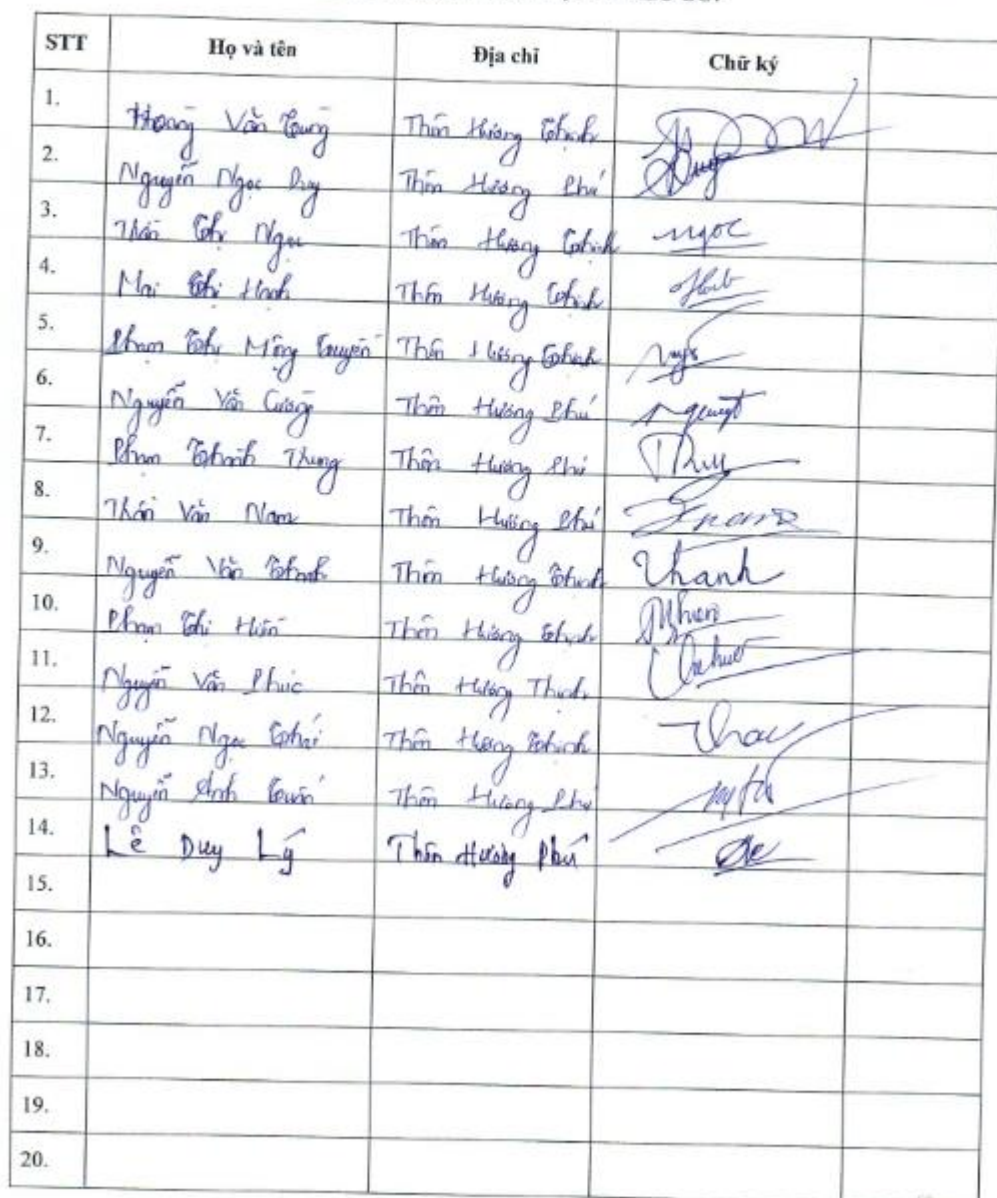 STT Họ và tên Địa chỉ Chữ ký
1. Hoàng Văn Tùng Thôn Hương Thịnh
2. Nguyễn Ngọc Duy Thôn Hương Phú
3. Thân Thị Ngọc Thôn Hương Thịnh ngọc
4. Mai Thị Hạnh Thôn Hương Thịnh
5. Phạm Thị Mộng Tuyền Thôn Hương Thịnh
6. Nguyễn Văn Cường Thôn Hương Phú
7. Phạm Thành Thung Thôn Hương Phú
8. Thân Văn Nam Thôn Hương Phú
9. Nguyễn Văn Thanh Thôn Hương Thịnh Thanh
10. Phạm Thị Hiền Thôn Hương Thịnh
11. Nguyễn Văn Phúc Thôn Hương Thịnh
12. Nguyễn Ngọc Thái Thôn Hương Thịnh
13. Nguyễn Anh Tuấn Thôn Hương Phú
14. Lê Duy Lý Thôn Hương Phú
15.
16.
17.
18.
19.
20.